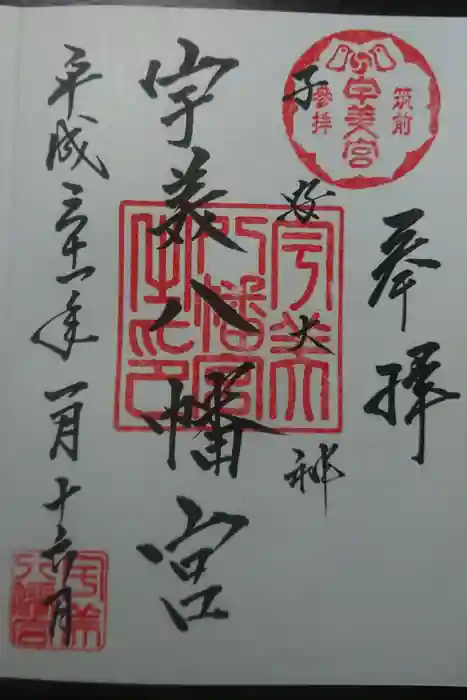 奉拝
筑前
宇美宮
參拝
子安大神
宇美
八幡宮
宇美八幡宮
平成三十一年一月十六日
宇美
八幡宮